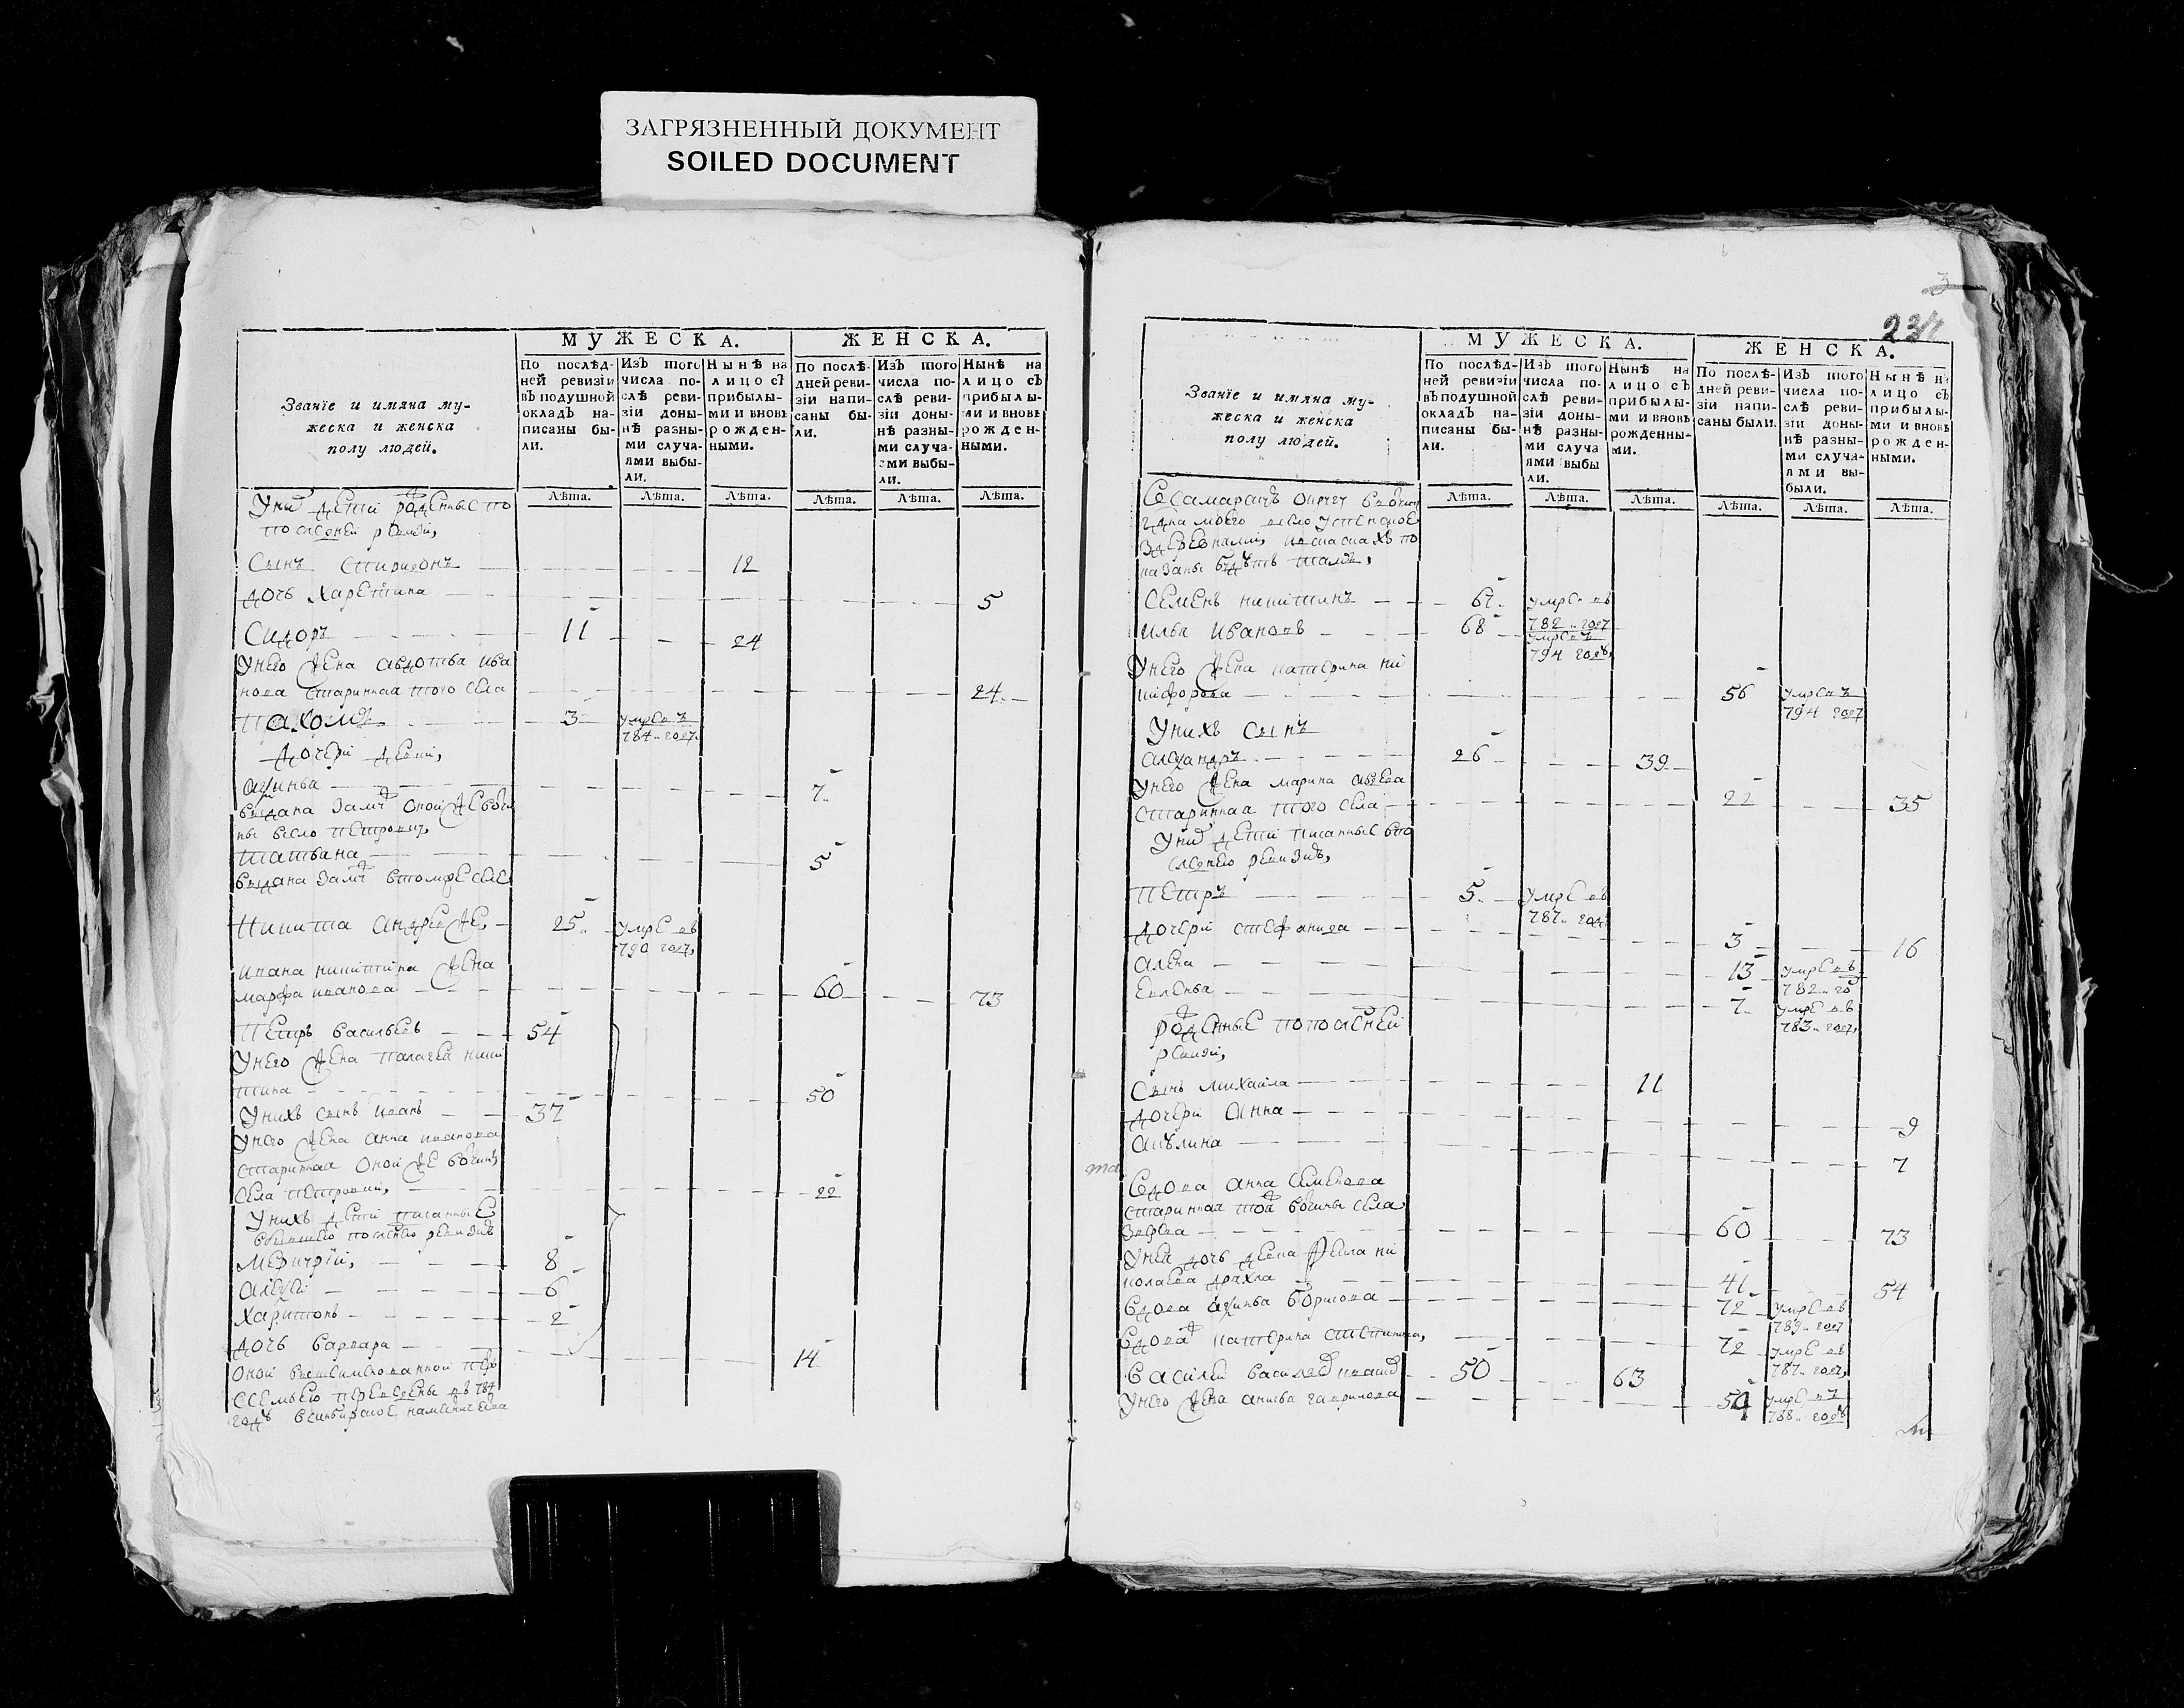 ЗАГРЯЗНЕННЫЙ ДОКУМЕНТ
SOILED DOCUMENT
Званїе и имяна му-
жеска и женска
полу людей.
МУЖЕСКА.
ЖЕНСКА.
По послѣд-
ней ревизіи
въ подушной
окладъ на-
писаны бы-
ли.
Изъ того
числа по-
слѣ реви-
зіи доны-
нѣ разны-
ми случа-
ями выбы-
ли.
Нынѣ на
лицо съ
прибылы-
ми и вновь
рожден-
ными.
По послѣ-
дней реви-
зіи напи-
саны бы-
ли.
Изъ того
числа по-
слѣ реви-
зіи доны-
нѣ разны-
ми случа-
ями выбы-
ли.
Нынѣ на
лицо съ
прибылы-
ми и вновь
рожден-
ными.
Лѣта. Лѣта. Лѣта. Лѣта. Лѣта. Лѣта.
дети рожденные по
последней ревизи,
Сынъ Спиридонъ 12
дочь Харетина 5
Сидоръ 11 24
Унего жена авдотья ива
нова старинная того села 24
Пахомъ 3 умре въ
784 году
дочери
7
выдана замуж оной же вотчи
ны въ село петровку,
татьяна 5
выдана замуж втомже селе
Никита андреев 25 умре въ
790 году,
ивана никитина жена
марфа иванова 60 73
Петръ васильевъ 54
Унего жена палагея ники
тина 50
Унихъ сынъ иванъ 37
Унего жена анна иванова
старинная оной же вотчины
села петровки, 22
Унихъ дети писанные
последнею ревизию
8
6
харитонъ 2
дочь варвара 14
оной
семьею переведены въ 784
году всинбирское наместничество
3
237
Званїе и имяна му-
жеска и женска
полу людей.
МУЖЕСКА.
ЖЕНСКА.
По послѣд-
ней ревизіи
въ подушной
окладъ на-
писаны бы-
ли.
Изъ того
числа по-
слѣ реви-
зіи доны-
нѣ разны-
ми случа-
ями выбы
ли.
Нынѣ на
лицо съ
прибылы-
ми и вновь
рожденны-
ми.
По послѣ-
дней реви-
зіи напи-
саны были.
Изъ того
числа по-
слѣ реви-
зіи доны-
нѣ разны-
ми случа-
ями вы-
были.
Нынѣ на
лицо съ
прибылы-
ми и вновь
рожден-
ными.
Лѣта. Лѣта. Лѣта. Лѣта. Лѣта. Лѣта.
моего село успенское
здеревнями,
казаны будутъ
Семенъ никитинъ 67 умре въ
782 году
илья ивановъ 68 умре въ
794 году,
Унего жена катерина ни
кифорова 56 умре въ
794 году
Унихъ сынъ
александръ 26 39
Унего жена марина
старинная того села 22 35
дети писанные впо
следнею ревизию,
Петръ 5 умре въ
787 году
дочери стефанида 3 16
алена 13 умре въ
782 году
7 умре въ
783 году,
рожденные попоследней
ревизи,
сынъ михайла 11
дочери анна 9
акулина 7
вдова анна семенова
старинная той вотчины села
60 73
Уней дочь девка ни
колаева 41 54
вдова борисова 72 умре въ
789 году
вдова катерина 72 умре въ
787 году,
василей 50 63
Унего жена анисья гаврилова 54 умре въ
788 году